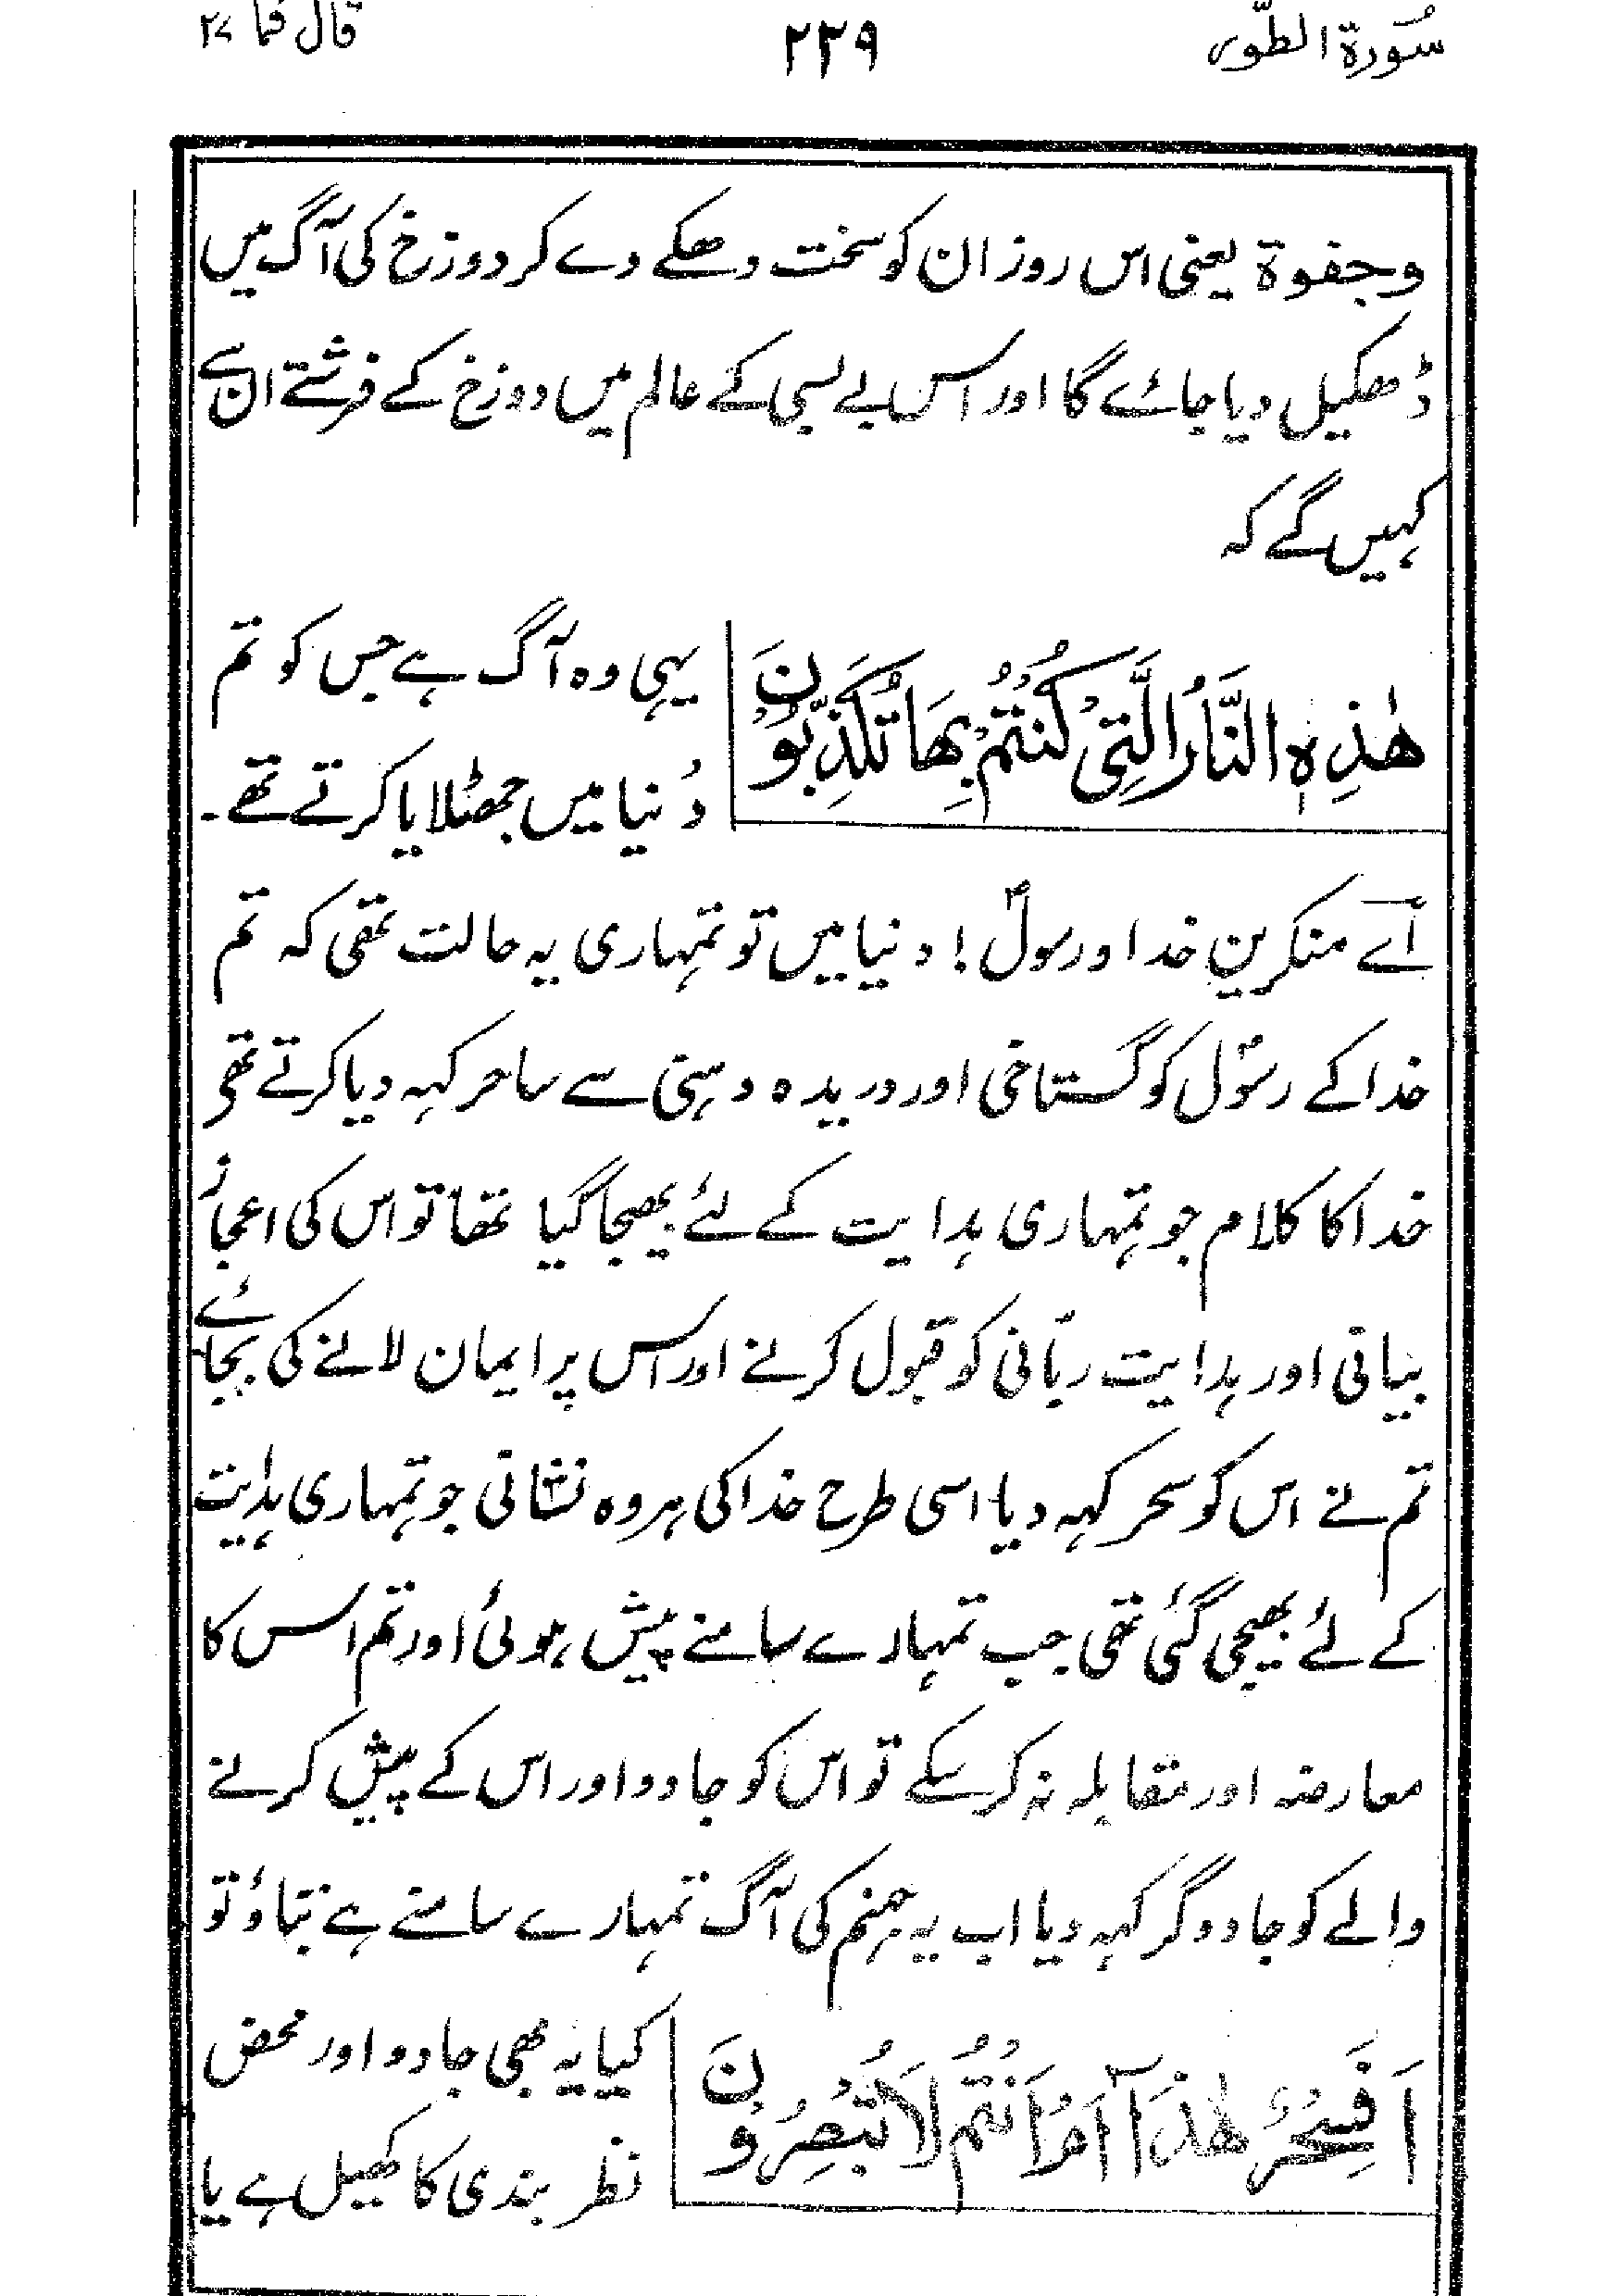 سُورۃ الطّور ۲۲۹ قال فما ۲۷
وجفوۃ یعنی اس روز ان کو سخت دھکے دے کر دوزخ کی آگ میں
ڈھکیل دیا جائے گا اور اس بے بسی کے عالم میں دوزخ کے فرشتے ان سے
کہیں گے کہ
هٰذِهِ النَّارُ الَّتِیْ كُنْتُمْ بِهَا تُكَذِّبُوْنَ
یہی وہ آگ ہے جس کو تم
دُنیا میں جھٹلایا کرتے تھے۔
اَے منکرینِ خدا و رسولؐ! دنیا میں تو تمہاری یہ حالت تھی کہ تم
خدا کے رسُولؐ کو گستاخی اور دریدہ دہنی سے ساحر کہہ دیا کرتے تھے
خدا کا کلام جو تمہاری ہدایت کے لئے بھیجا گیا تھا تو اس کی اعجاز
بیانی اور ہدایت ربّانی کو قبول کرنے اور اس پر ایمان لانے کی بجائے
تم نے اس کو سحر کہہ دیا اسی طرح خدا کی ہر وہ نشانی جو تمہاری ہدایت
کے لئے بھیجی گئی تھی جب تمہارے سامنے پیش ہوئی اور تم اس کا
معارضہ اور مقابلہ نہ کر سکے تو اس کو جادو اور اس کے پیش کرنے
والے کو جادوگر کہہ دیا اب یہ جہنم کی آگ تمہارے سامنے ہے بتاؤ تو
اَفَسِحْرٌ هٰذَآ اَمْ اَنْتُمْ لَا تُبْصِرُوْنَ
کیا یہ بھی جادو اور محض
نظر بندی کا کھیل ہے یا